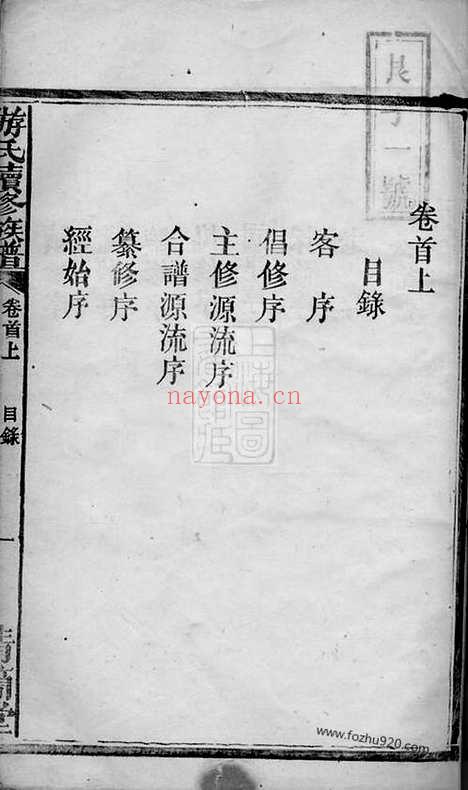 卷首上
目錄
客序
倡修序
主修源流序
合譜源流序
纂修序
經始序
游氏續修族譜
卷首上
目錄
一
nayona.cn
www.fozhu920.com